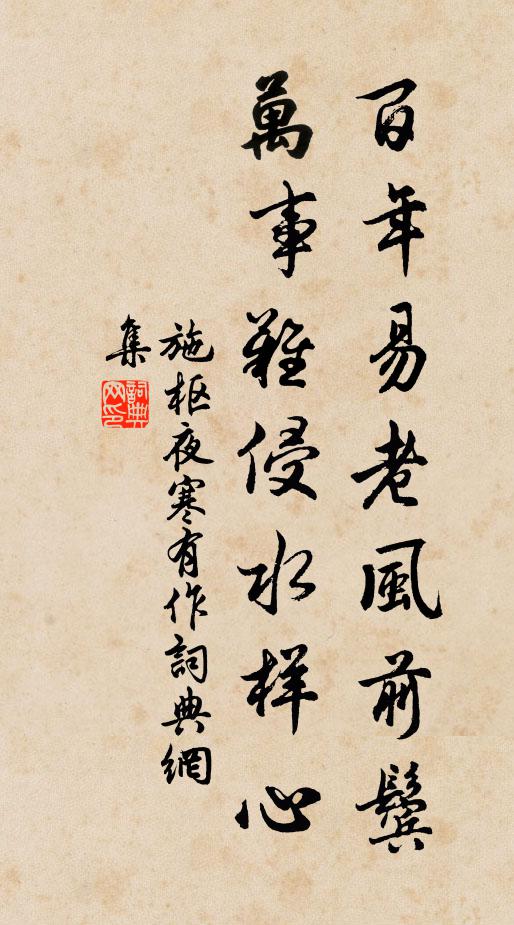 百年易老風前鬢
萬事難侵水样心
施枢夜寒有作詞典網
集
詞典網印